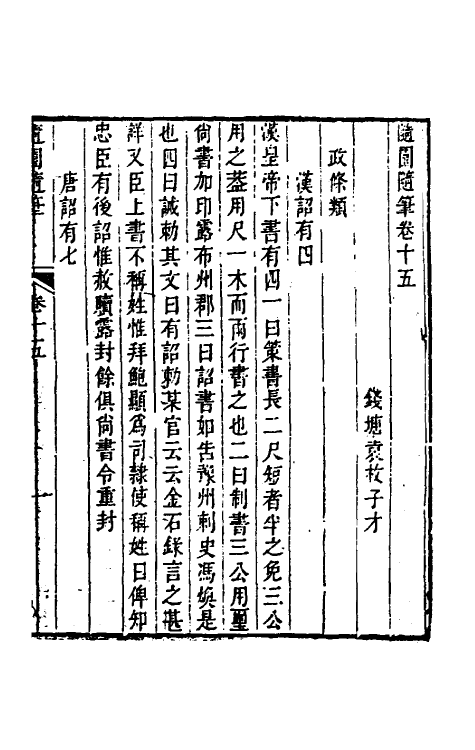 隨園隨筆卷十五
錢塘袁枚子才
政條類
漢詔有四
漢皇帝下書有四一曰策書長二尺短者半之免三公
用之葢用尺一木而兩行書之也二曰制書三公用璽
尙書加印露布州郡三曰詔書如告豫州刺史馮煥是
也四曰誠勅其文曰有詔勅某官云云金石錄言之甚
詳又臣上書不稱姓惟拜鮑顯爲司隸使稱姓曰俾知
忠臣有後詔惟赦贖露封餘俱尙書令重封
唐詔有七
隨園隨筆
卷十五